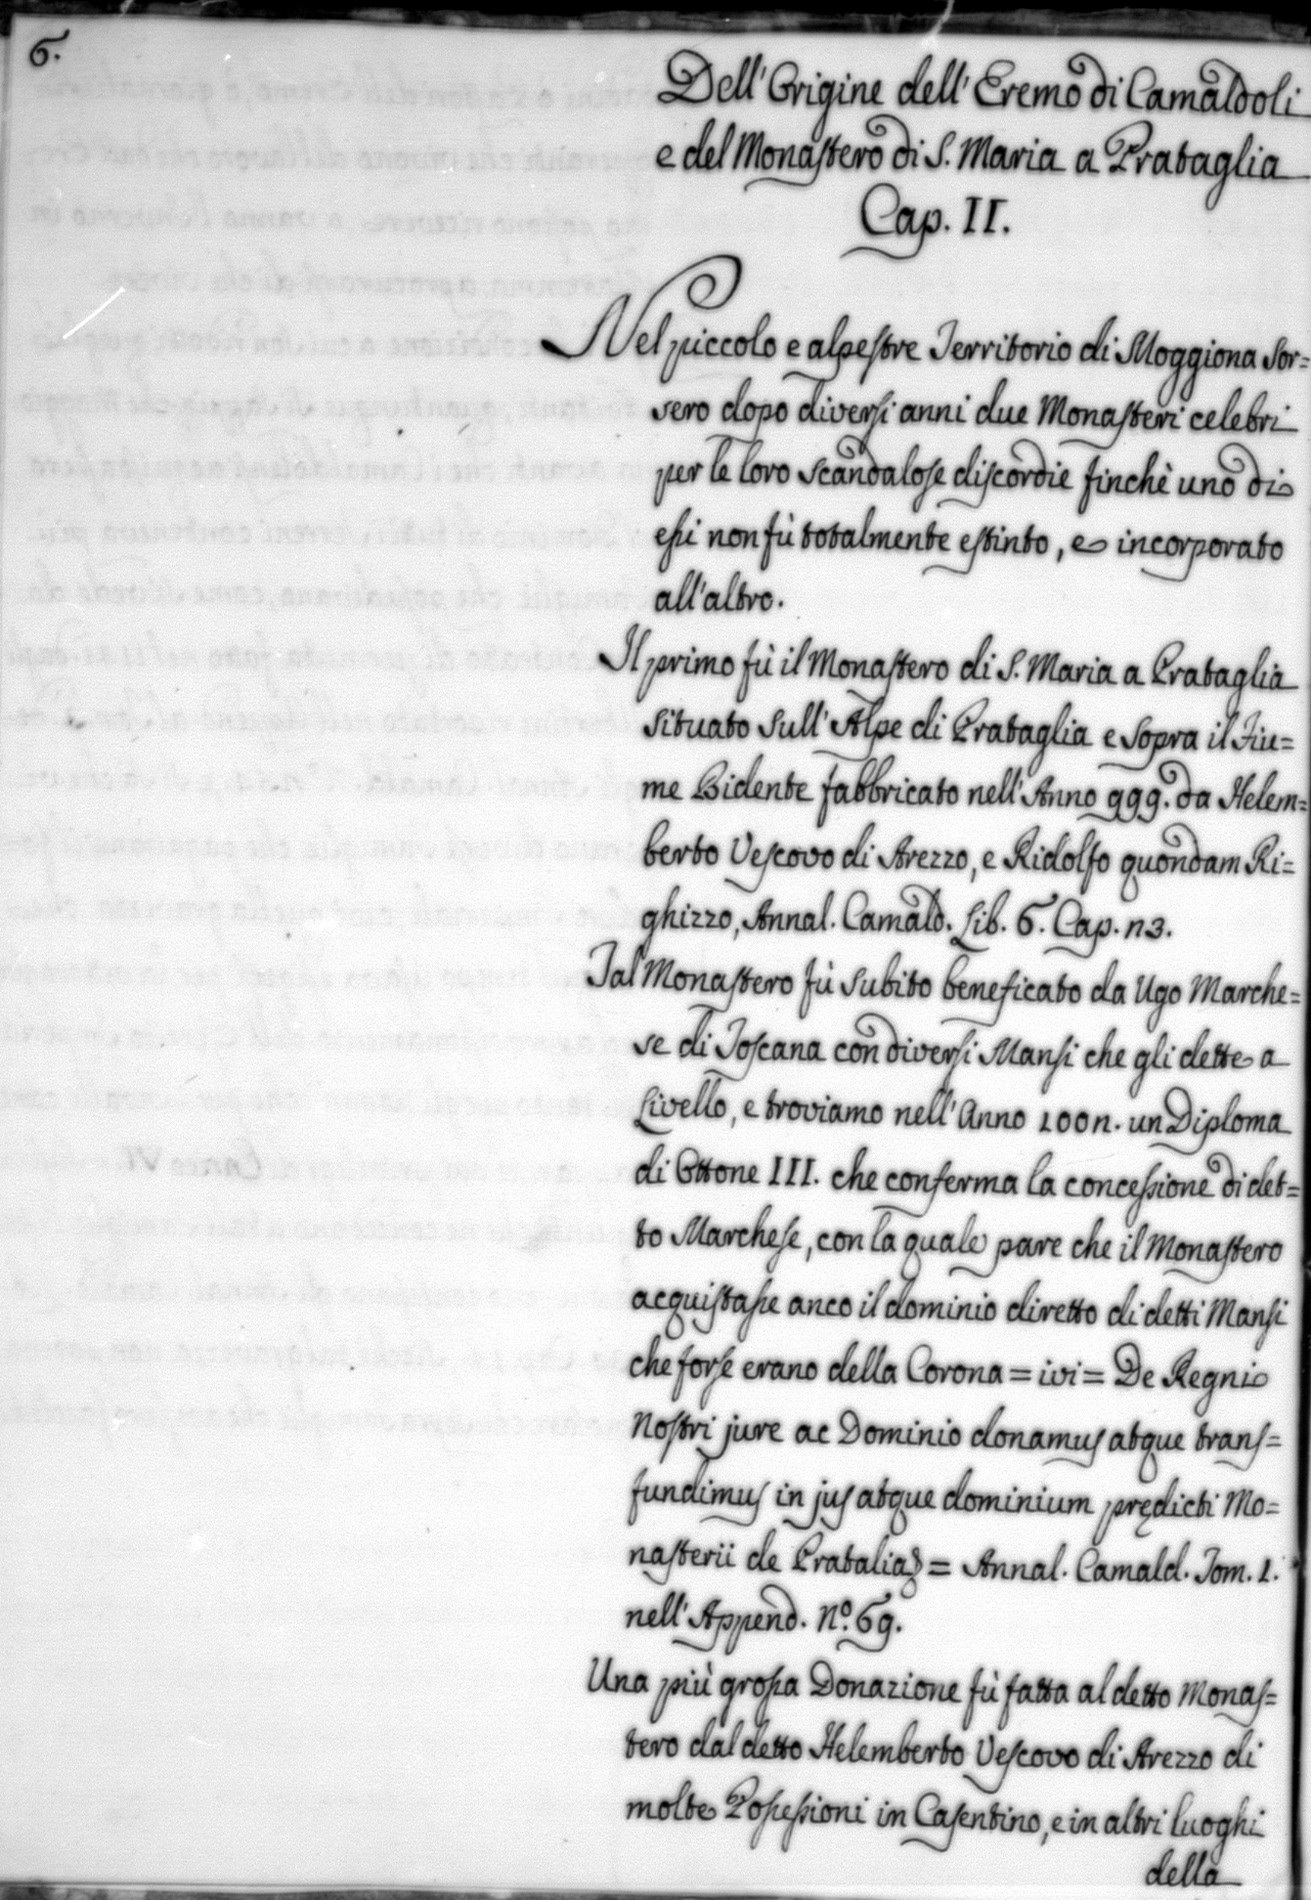 6.
Dell'Origine dell'Eremo di Camaldoli
e del Monastero di S. Maria a Prataglia
Cap. II.
Nel piccolo e alpestre Territorio di Moggiona sor=
sero dopo diversi anni due Monasteri celebri
per le loro scandalose discordie finchè uno di
essi non fù totalmente estinto, e incorporato
all'altro.
Il primo fù il Monastero di S. Maria a Prataglia
situato sull'Alpe di Prataglia e sopra il Fiu=
me Bidente fabbricato nell'Anno 999. da Helem=
berto Vescovo di Arezzo, e Ridolfo quondam Ri=
ghizzo, Annal. Camald. Lib. 6. Cap. 23.
Tal Monastero fù subito beneficato da Ugo Marche=
se di Toscana con diversi Mansi che gli dette a
Livello, e troviamo nell'Anno 1002. un Diploma
di Ottone III. che conferma la concessione di det=
to Marchese, con la quale pare che il Monastero
acquistasse anco il dominio diretto di detti Mansi
che forse erano della Corona = ivi = De Regni
Nostri jure ac Dominio donamus atque trans=
fundimus in jus atque dominium prędicti Mo=
nasterii de Pratalia = Annal. Camald. Tom. 1.
nell'Append. N.º 69.
Una più grossa Donazione fù fatta al detto Monas=
tero dal detto Helemberto Vescovo di Arezzo di
molte Possessioni in Casentino, e in altri luoghi
della